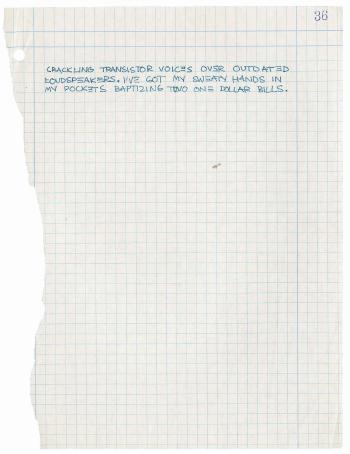 36
CRACKLING TRANSISTOR VOICES OVER OUTDATED
LOUDSPEAKERS. I'VE GOT MY SWEATY HANDS IN
MY POCKETS BAPTIZING TWO ONE DOLLAR BILLS.